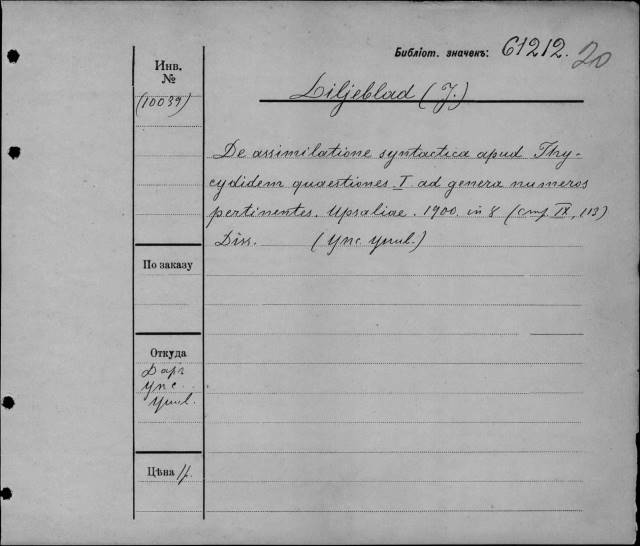 Библіот. значекъ: 61212. 20
Инв.
№
(10039)
Liljeblad (J.)
De assimilatione syntactica apud Thy-
cydidem quaestiones I ad genera numeros
pertinentes. Upsaliae. 1900. in 8 (стр IX, 113)
Diss. (Упс. унив.)
По заказу
Откуда
Даръ
Упс.
унив.
Цѣна 1р.